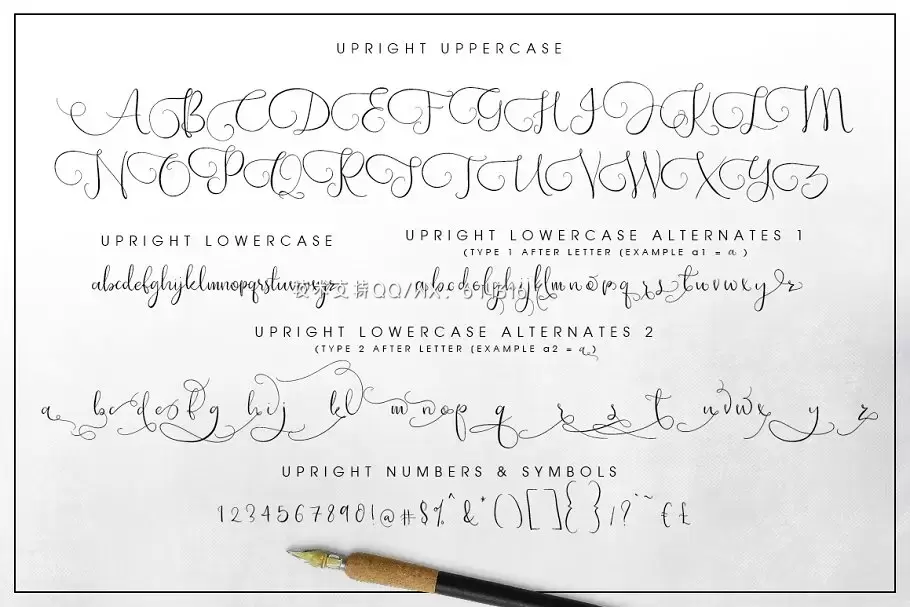 UPRIGHT UPPERCASE
A B C D E F G H I J K L M
N O P Q R S T U V W X Y Z
UPRIGHT LOWERCASE
UPRIGHT LOWERCASE ALTERNATES 1
(TYPE 1 AFTER LETTER (EXAMPLE a1 = a )
abcdefghijklmnopqrstuvwxyz
a b c d e f g h i j k l m n o p q r s t u v w x y z
UPRIGHT LOWERCASE ALTERNATES 2
(TYPE 2 AFTER LETTER (EXAMPLE a2 = a)
a b c d e f g h i j k l m n o p q r s t u v w x y z
UPRIGHT NUMBERS & SYMBOLS
1234567890!@#$%^&*()[]{}/?¨~€£